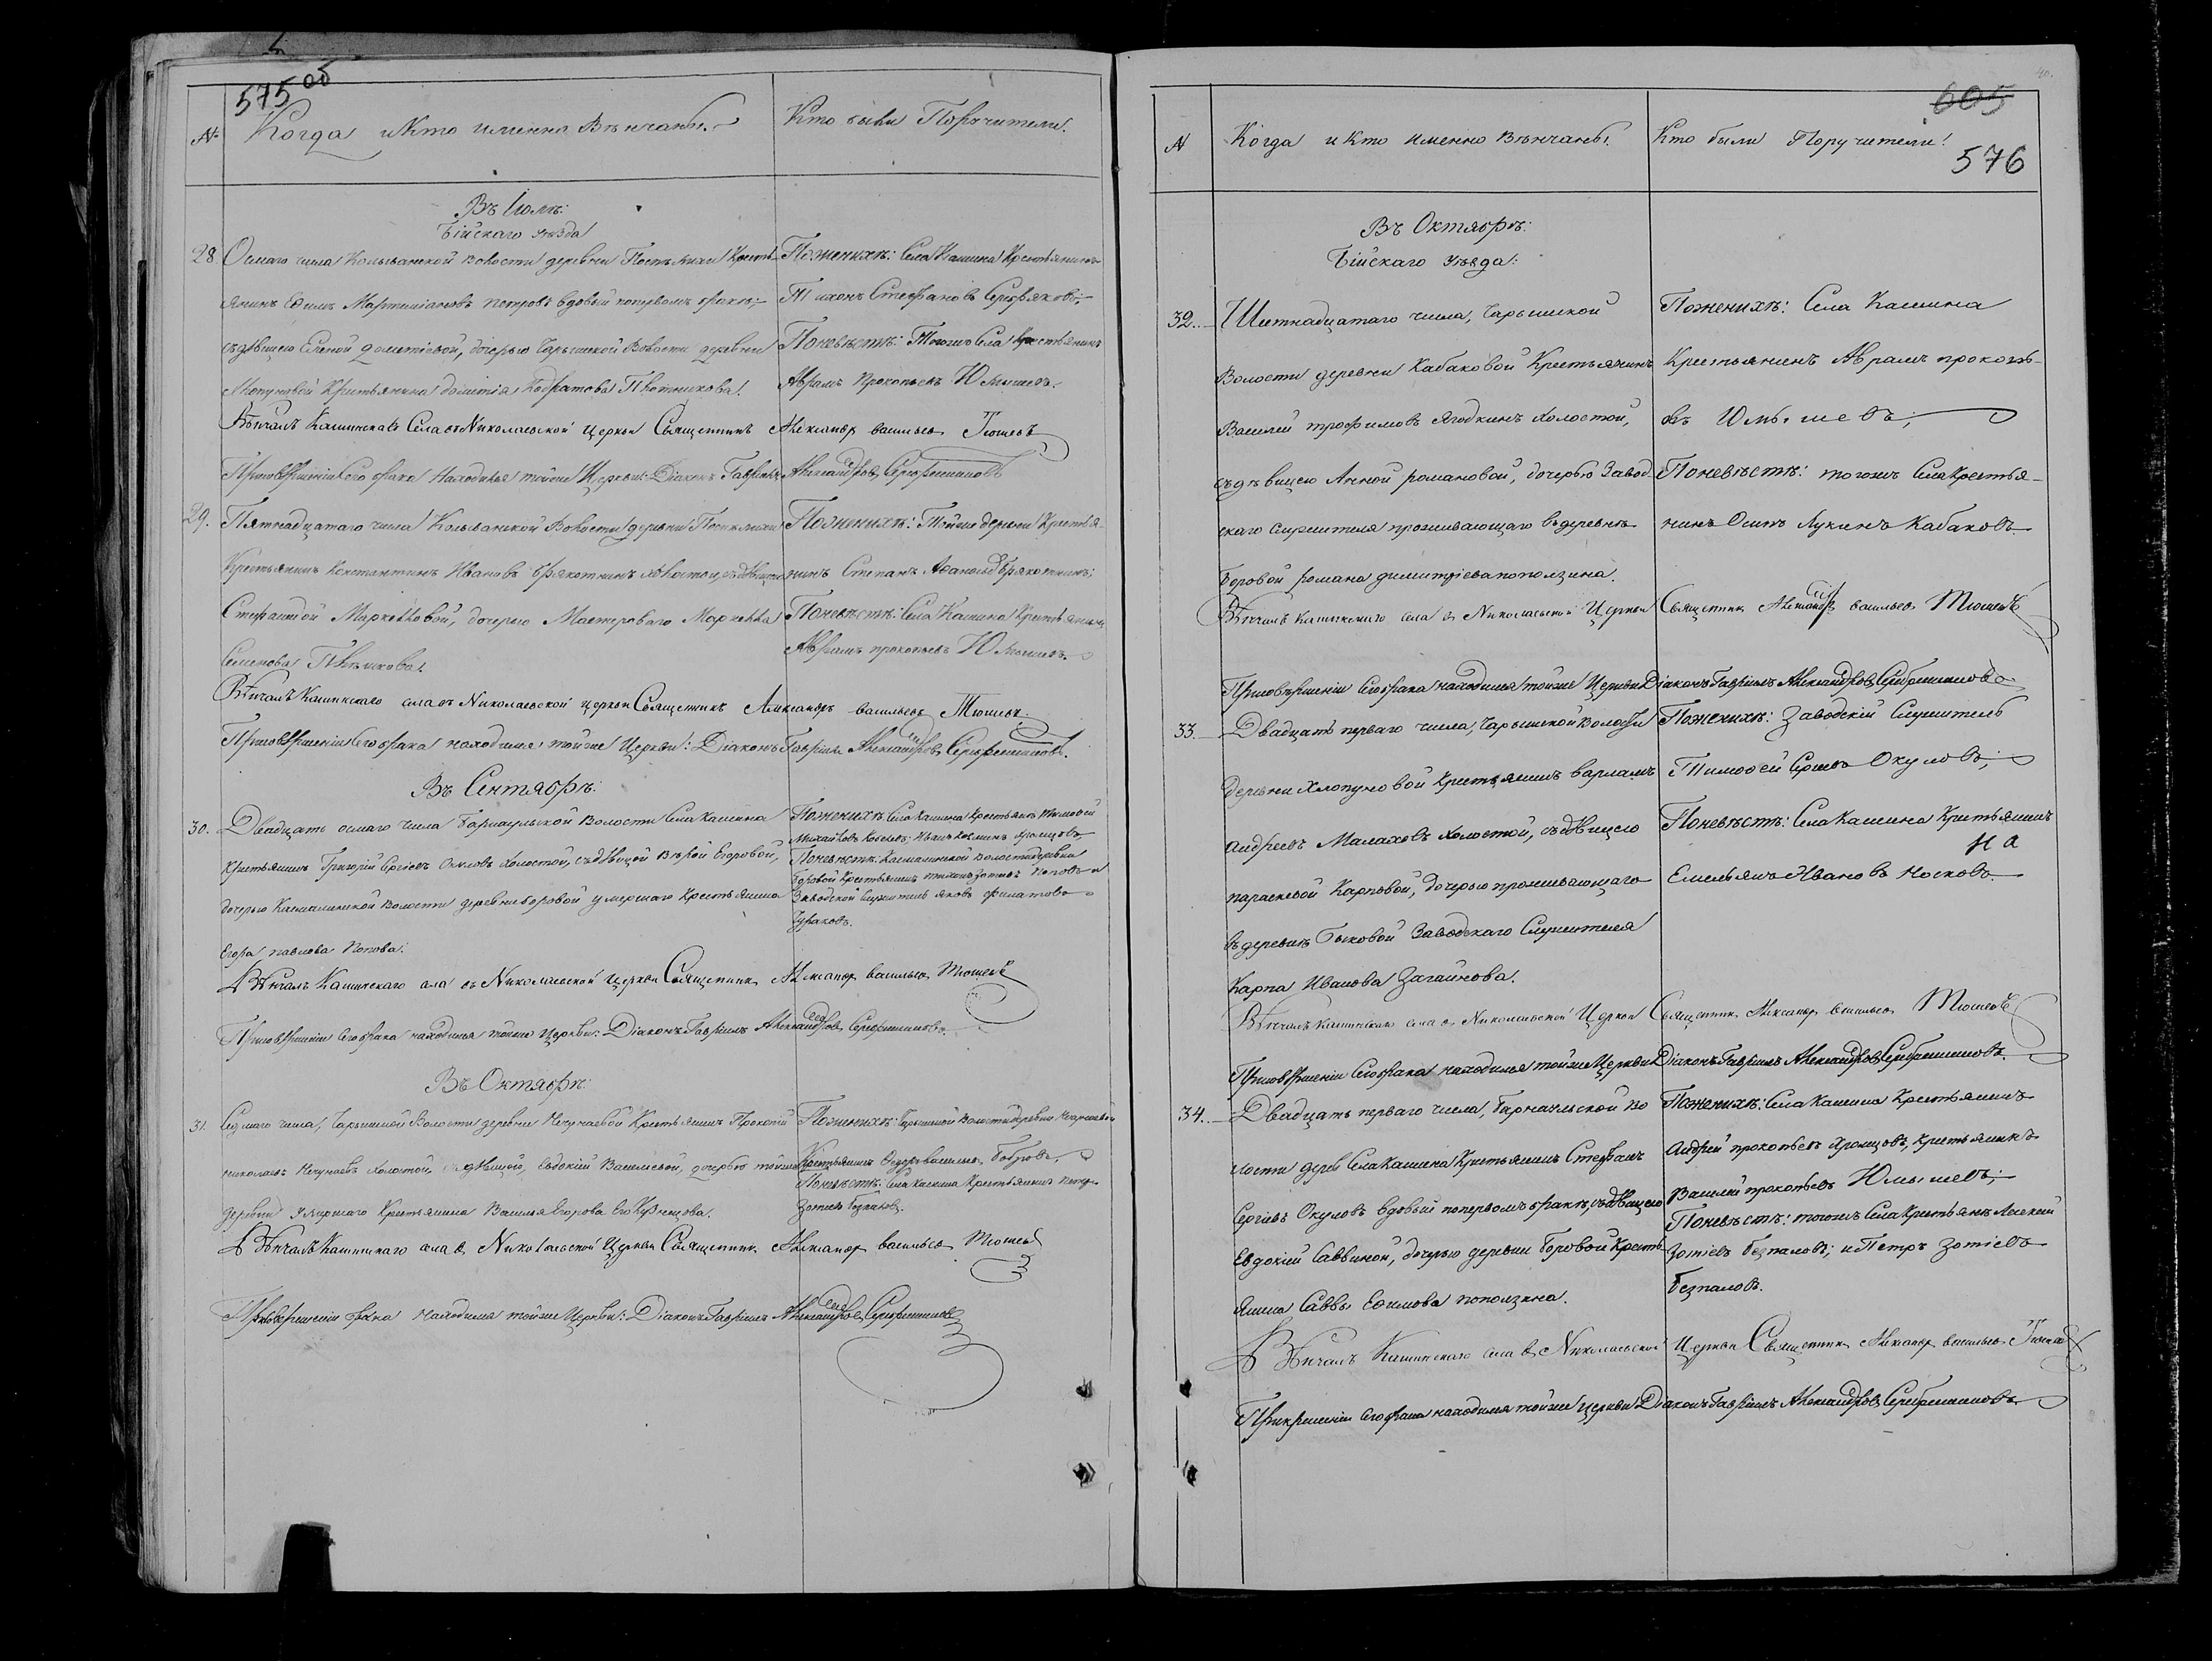 575
№
Когда и Кто именно Вѣнчаны.
Кто были Поручители.
Въ Іюлѣ:
Бійскаго уѣзда
28. Осмаго числа Колыванской Волости деревни Крестья-
янинъ Ефимъ Мартиніановъ Петровъ вдовый попервомъ бракѣ;
съдѣвицею Еленой Дометіевой, дочерью Чарышской Волости деревни
Хлопуновой Крестьянина Дометія Кодратова Плотникова.
Поженихѣ: Села Кашина Крестьянинъ
Тихонъ Стефановъ
Поневѣстѣ: Тогожъ Села Крестьянинъ
Аврамъ Прокопьевъ Юмышевъ.
Вѣнчалъ Кашинскаго Села Николаевской Церкви Священникъ Александръ Васильевъ Тюшевъ
Присовершеніи Сего брака Находился тойже Церкви: Діаконъ Гавріилъ Александровъ Серебренниковъ
29. Пятнадцатаго числа Колыванской Волости деревни
Крестьянинъ Константинъ Ивановъ Брякотнинъ холостой, съдѣвицею
Стефанидой Маркелловой, дочерью Мастероваго Маркелла
Семенова
Поженихѣ: Тойже деревни Крестья-
нинъ Степанъ Брякотнинъ;
Поневѣстѣ: Села Кашина Крестьянинъ
Аврамъ прокопьевъ Юмышевъ.
Вѣнчалъ Кашинскаго села Николаевской церкви Священникъ Александръ васильевъ Тюшевъ
Присовершеніи Сего брака находился тойже Церкви: Діаконъ Гавріилъ Александровъ Серебренниковъ.
Въ Сентябрѣ:
30. Двадцать осмаго числа Барнаульской Волости Села Кашина
Крестьянинъ Григорій Сергіевъ Окуловъ Холостой, съдѣвицей Вѣрой Егоровой,
дочерью Касмалинской Волости деревни боровой умершаго Крестьянина
Егора павлова Попова.
Поженихѣ: Села Кашина Крестьяне Тимофей
Михайловъ Иванъ Хромцовъ
Поневѣстѣ: Касмалинской Волости деревни
Боровой Крестьянинъ тихонъ Зотиевъ Поповъ и
Заводской Служитель яковъ филатовъ
Чураковъ.
Вѣнчалъ Кашинскаго села Николаевской Церкви Священникъ Александръ васильевъ Тюшевъ
Присовершеніи Сего брака находился тойже Церкви: Діаконъ Гавріилъ Александровъ Серебренниковъ.
Въ Октябрѣ:
31. Седмаго числа, Чарышской Волости деревни Нечунаевой Крестьянинъ Прокопій
николаевъ Нечунаевъ холостой, съдѣвицею, Евдокіей Васильевой, дочерью тойже
деревни Умершаго Крестьянина Василья Егорова Кузнецова.
Поженихѣ: Чарышской Волости деревни
Крестьянинъ васильевъ Бобровъ.
Поневѣстѣ: Села Кашина Крестьянинъ Петръ
Зотиевъ Безпаловъ.
Вѣнчалъ Кашинскаго села Николаевской Церкви Священникъ Александръ васильевъ Тюшевъ
Присовершеніи брака Находился тойже Церкви: Діаконъ Гавріилъ Александровъ Серебренниковъ
605
576
N
Когда и Кто Именно Вѣнчаны.
Кто были Поручители!
Въ Октябрѣ:
Бійскаго Уѣзда:
32. Шестнадцатаго числа, Чарышской
Волости деревни Кабаковой Крестьянинъ
Василей трофимовъ Ягодкинъ Холостой,
съдѣвицею Анной романовой, дочерью Завод-
скаго служителя проживающаго въдеревнѣ
Боровой романа димитріева поползина.
Поженихѣ: Села Кашина
Крестьянинъ Аврамъ прокопь-
евъ Юмышевъ;
Поневѣстѣ: тогожъ Села Крестья-
нинъ Осипъ Лукинъ Кабаковъ.
Вѣнчалъ Кашинскаго села Николаевской Церкви Священникъ Александръ васильевъ Тюшевъ
Присовершеніи Сего брака находился тойже Церкви Діаконъ Гавріилъ Александровъ Серебренниковъ
33. Двадцать перваго числа, Чарышской Волости
деревни Хлопуновой Крестьянинъ варламъ
андреевъ Малаховъ холостой, съдѣвицею
параскевой Карповой, дочерью проживающаго
въдеревнѣ Быковой Заводскаго Служителя
Карпа Иванова Загайнова.
Поженихѣ: Заводскій Служитель
Тимофей Окуловъ;
Поневѣстѣ: Села Кашина Крестьянинъ
на
Емельянъ Ивановъ Носковъ.
Вѣнчалъ Кашинскаго села Николаевской Церкви Священникъ Александръ васильевъ Тюшевъ
Присовершеніи Сего брака находился тойже Церкви Діаконъ Гавріилъ Александровъ Серебренниковъ.
34. Двадцать перваго числа, Барнаульской Во
лости Села Кашина Крестьянинъ Стефанъ
Сергіевъ Окуловъ вдовый попервомъ бракѣ, съдѣвицею
Евдокіей Саввиной, дочерью деревни Боровой Кресть
янина Саввы Ефимова поползина.
Поженихѣ: Села Кашина Крестьянинъ
Андрей прокопьевъ Хромцовъ, крестьянинъ
Василей прокопьевъ Юмышевъ;
Поневѣстѣ: тогожъ Села Крестьяне
Зотіевъ Безпаловъ; и Петръ Зотіевъ
Безпаловъ.
Вѣнчалъ Кашинскаго села Николаевской Церкви Священникъ Александръ васильевъ Тюшевъ
Сего брака находился тойже Церкви Діаконъ Гавріилъ Александровъ Серебренниковъ